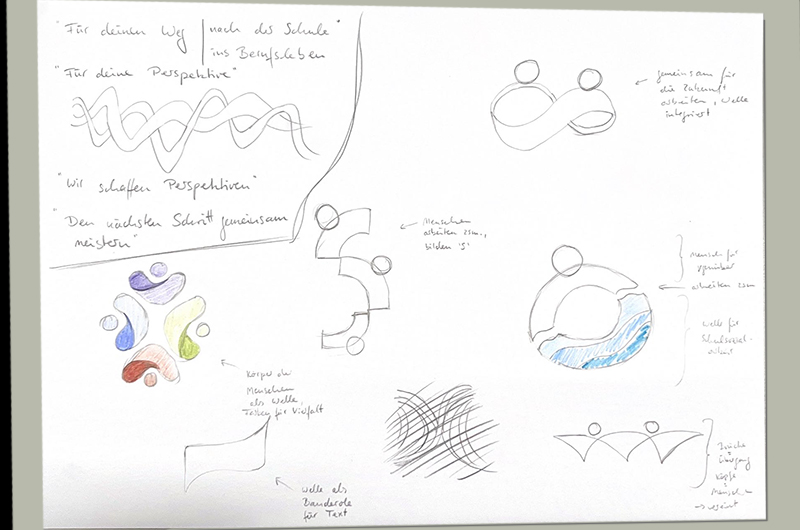 "Für deinen Weg | nach der Schule"
ins Berufsleben
"Für deine Perspektive"
"Wir schaffen Perspektiven"
"Den nächsten Schritt gemeinsam
meistern"
gemeinsam für
die Zukunft
arbeiten, Welle
integriert
Menschen
arbeiten zsm.,
bilden 'S'
Mensch für
arbeiten zsm
Welle für
Körper der
Menschen
als Welle,
Farben für Vielfalt
Welle als
Banderole
für Text
Brücke
Übergang
Köpfe
Menschen
→ vereint